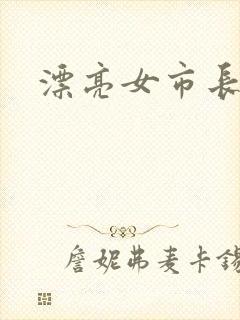 漂亮女市長
詹妮弗麦卡錫